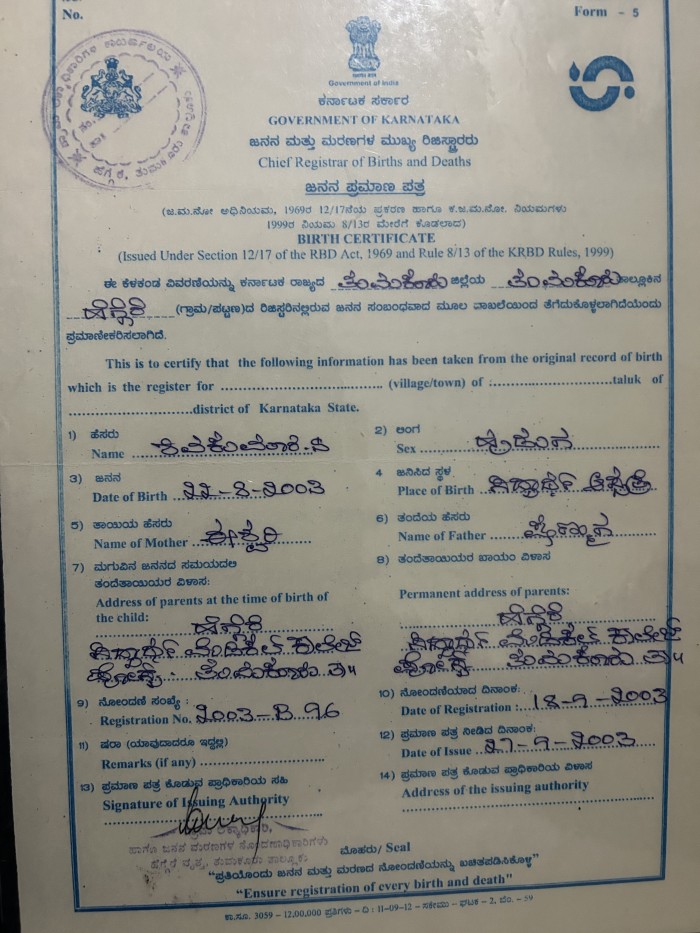 No.
Form - 5
Government of India
ಕರ್ನಾಟಕ ಸರ್ಕಾರ
GOVERNMENT OF KARNATAKA
ಜನನ ಮತ್ತು ಮರಣಗಳ ಮುಖ್ಯ ರಿಜಿಸ್ಟ್ರಾರರು
Chief Registrar of Births and Deaths
ಜನನ ಪ್ರಮಾಣ ಪತ್ರ
(ಜ.ಮ.ನೋ ಅಧಿನಿಯಮ, 1969ರ 12/17ನೆಯ ಪ್ರಕರಣ ಹಾಗೂ ಕ.ಜ.ಮ.ನೋ. ನಿಯಮಗಳು
1999ರ ನಿಯಮ 8/13ರ ಮೇರೆಗೆ ಕೊಡಲಾದ)
BIRTH CERTIFICATE
(Issued Under Section 12/17 of the RBD Act, 1969 and Rule 8/13 of the KRBD Rules, 1999)
ಈ ಕೆಳಕಂಡ ವಿವರಣೆಯನ್ನು ಕರ್ನಾಟಕ ರಾಜ್ಯದ ತುಮಕೂರು ಜಿಲ್ಲೆಯ ತುಮಕೂರು ತಾಲ್ಲೂಕಿನ
ಹೆಗ್ಗೆರೆ (ಗ್ರಾಮ/ಪಟ್ಟಣ)ದ ರಿಜಿಸ್ಟರಿನಲ್ಲಿರುವ ಜನನ ಸಂಬಂಧವಾದ ಮೂಲ ದಾಖಲೆಯಿಂದ ತೆಗೆದುಕೊಳ್ಳಲಾಗಿದೆಯೆಂದು
ಪ್ರಮಾಣೀಕರಿಸಲಾಗಿದೆ.
This is to certify that the following information has been taken from the original record of birth
which is the register for ................................... (village/town) of :..........................taluk of
...........................district of Karnataka State.
1) ಹೆಸರು
Name ಶಿವಕುಮಾರಿ.
2) ಲಿಂಗ
Sex ಹುಡುಗ
3) ಜನನ
Date of Birth 22-8-2003
4 ಜನಿಸಿದ ಸ್ಥಳ
Place of Birth ಸಿದ್ಧಾರ್ಥ ಆಸ್ಪತ್ರೆ
5) ತಾಯಿಯ ಹೆಸರು
Name of Mother ಈಶ್ವರಿ
6) ತಂದೆಯ ಹೆಸರು
Name of Father
7) ಮಗುವಿನ ಜನನದ ಸಮಯದಲಿ
ತಂದೆತಾಯಿಯರ ವಿಳಾಸ:
Address of parents at the time of birth of
the child: ಹೆಗ್ಗೆರೆ
ಸಿದ್ಧಾರ್ಥ ಮೆಡಿಕಲ್ ಕಾಲೇಜ್
ಪೋಸ್ಟ್. ತುಮಕೂರು ತಾ||
8) ತಂದೆತಾಯಿಯರ ಖಾಯಂ ವಿಳಾಸ
Permanent address of parents:
ಹೆಗ್ಗೆರೆ
ಸಿದ್ಧಾರ್ಥ ಮೆಡಿಕಲ್ ಕಾಲೇಜ್
ಪೋಸ್ಟ್ ತುಮಕೂರು ತಾ||
9) ನೋಂದಣಿ ಸಂಖ್ಯೆ :
Registration No. 2003-B 96
10) ನೋಂದಣಿಯಾದ ದಿನಾಂಕ:
Date of Registration : 18-9-2003
11) ಷರಾ (ಯಾವುದಾದರೂ ಇದ್ದಲ್ಲಿ)
Remarks (if any) ..............................
12) ಪ್ರಮಾಣ ಪತ್ರ ನೀಡಿದ ದಿನಾಂಕ:
Date of Issue 27-9-2003
13) ಪ್ರಮಾಣ ಪತ್ರ ಕೊಡುವ ಪ್ರಾಧಿಕಾರಿಯ ಸಹಿ
Signature of Issuing Authority
14) ಪ್ರಮಾಣ ಪತ್ರ ಕೊಡುವ ಪ್ರಾಧಿಕಾರಿಯ ವಿಳಾಸ
Address of the issuing authority
ಹಾಗೂ ಜನನ ಮರಣಗಳ ನೋಂದಣಾಧಿಕಾರಿಗಳು
ಹೆಗ್ಗೆರೆ ವೃತ್ತ, ತುಮಕೂರು ತಾಲ್ಲೂಕು
ಮೊಹರು/ Seal
"ಪ್ರತಿಯೊಂದು ಜನನ ಮತ್ತು ಮರಣದ ನೋಂದಣೆಯನ್ನು ಖಚಿತಪಡಿಸಿಕೊಳ್ಳಿ"
"Ensure registration of every birth and death"
ಕಾ.ಸೂ. 3059 – 12,00,000 ಪ್ರತಿಗಳು – ದಿ : 11-09-12 – ಸಕೇಮು – ಘಟಕ – 2, ಬೆಂ. – 59